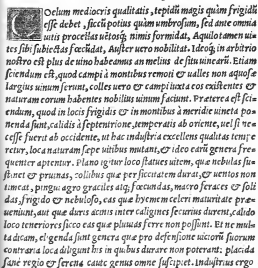 COelum mediocris qualitatis, tepidũ magis quàm frigidũ
esse debet, siccũ potius quàm umbrosum, sed ante omnia
uitis procellas uẽtosq; nimis formidat, Aquilo tamen ui-
tes sibi subiectas fœcũdat, Auster uero nobilitat. Ideoq; in arbitrio
nostro est plus de uino habeamus an melius desitu uineærũ. Etiam
sciendum est, quod campi à montibus remoti & ualles non aquosæ
largius uinum ferunt, colles uero ex circũstantijs uentos existentes &
naturam eorum habentes nobilius uinum faciunt. Præterea est sci-
endum, quod in locis frigidis & in montibus à meridie uineta po-
nenda sunt, calidis à septentrione, temperatis ab oriente, uel si ne-
cesse fuerit ab occidente, ut hac industria excellentes qualitas tempe-
retur, loca uero naturam sæpe uitibus mutant, & ideo earũ genera fre-
quenter aptentur. Plano igitur loco statues uitem, quæ nebulas su-
stinet & pruinas, collibus quæ per siccitatem durat, & uentos non
timeat, pingui agro graciles atq; fœcundas, macro feraces & soli-
das, frigido & nebuloso, eas quæ hyemem celeri maturitate præ-
ueniunt, aut quæ duris acinis inter caligines securius durent, calido
loco teneriores sicco eas quæ pluuias ferre non possunt. Et ne multa
dicam, elegenda sunt genera quæ pro defensione uiciorũ suorum
contraria loca diligunt his in quibus durare non poterant: placida
sane regio & serena cautè genus omne suscipiet. Industrijs ergo